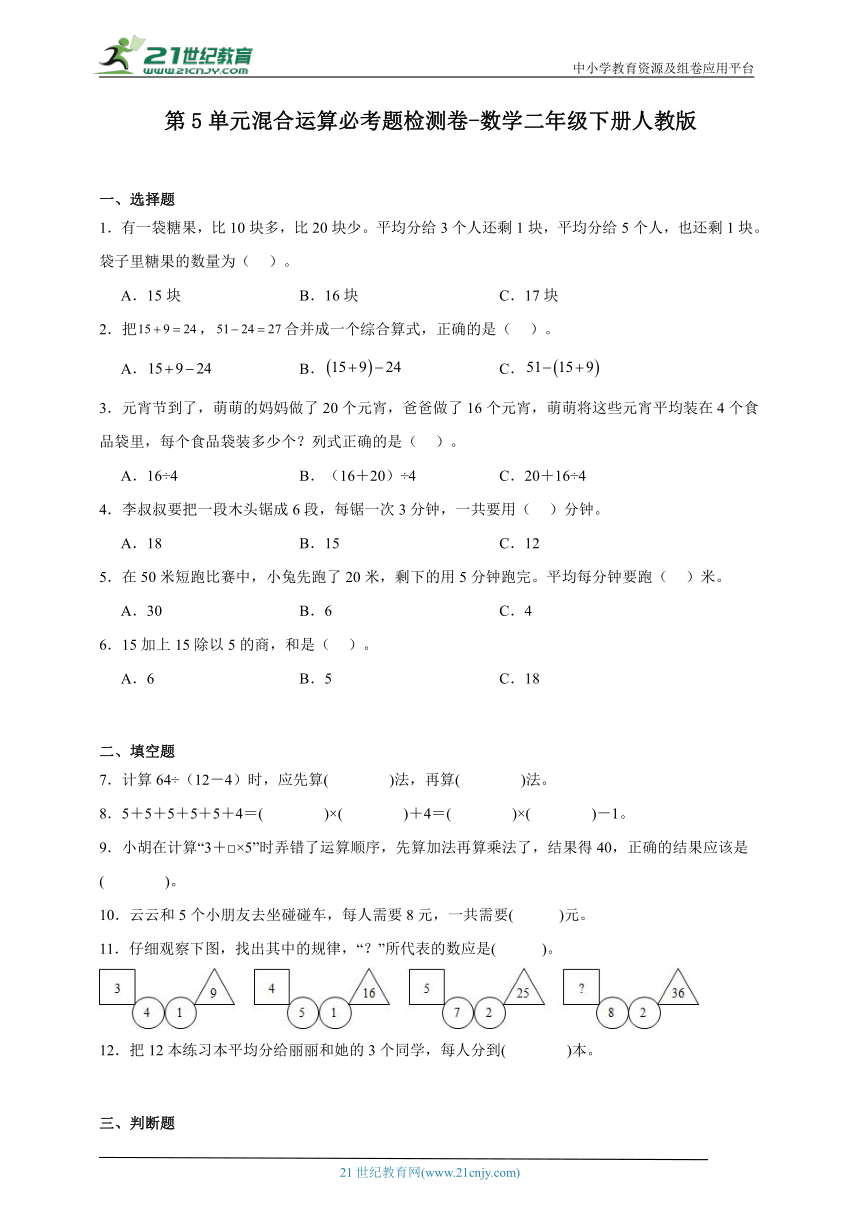 21世纪教育
WWW.21CNJY.COM
中小学教育资源及组卷应用平台
第5单元混合运算必考题检测卷-数学二年级下册人教版
一、选择题
1．有一袋糖果，比10块多，比20块少。平均分给3个人还剩1块，平均分给5个人，也还剩1块。
袋子里糖果的数量为（    ）。
A．15块 B．16块 C．17块
2．把15+9=24，51−24=27合并成一个综合算式，正确的是（    ）。
A．15+9−24 B．(15+9)−24 C．51−(15+9)
3．元宵节到了，萌萌的妈妈做了20个元宵，爸爸做了16个元宵，萌萌将这些元宵平均装在4个食
品袋里，每个食品袋装多少个？列式正确的是（    ）。
A．16÷4 B．（16＋20）÷4 C．20＋16÷4
4．李叔叔要把一段木头锯成6段，每锯一次3分钟，一共要用（    ）分钟。
A．18 B．15 C．12
5．在50米短跑比赛中，小兔先跑了20米，剩下的用5分钟跑完。平均每分钟要跑（    ）米。
A．30 B．6 C．4
6．15加上15除以5的商，和是（    ）。
A．6 B．5 C．18
二、填空题
7．计算64÷（12－4）时，应先算(        )法，再算(        )法。
8．5＋5＋5＋5＋5＋4＝(        )×(        )＋4＝(        )×(        )－1。
9．小胡在计算“3＋□×5”时弄错了运算顺序，先算加法再算乘法了，结果得40，正确的结果应该是
(        )。
10．云云和5个小朋友去坐碰碰车，每人需要8元，一共需要(      )元。
11．仔细观察下图，找出其中的规律，“？”所代表的数应是(      )。
3 4 1 9 4 5 1 16 5 7 2 25 ? 8 2 36
12．把12本练习本平均分给丽丽和她的3个同学，每人分到(        )本。
三、判断题
21世纪教育网(www.21cnjy.com)